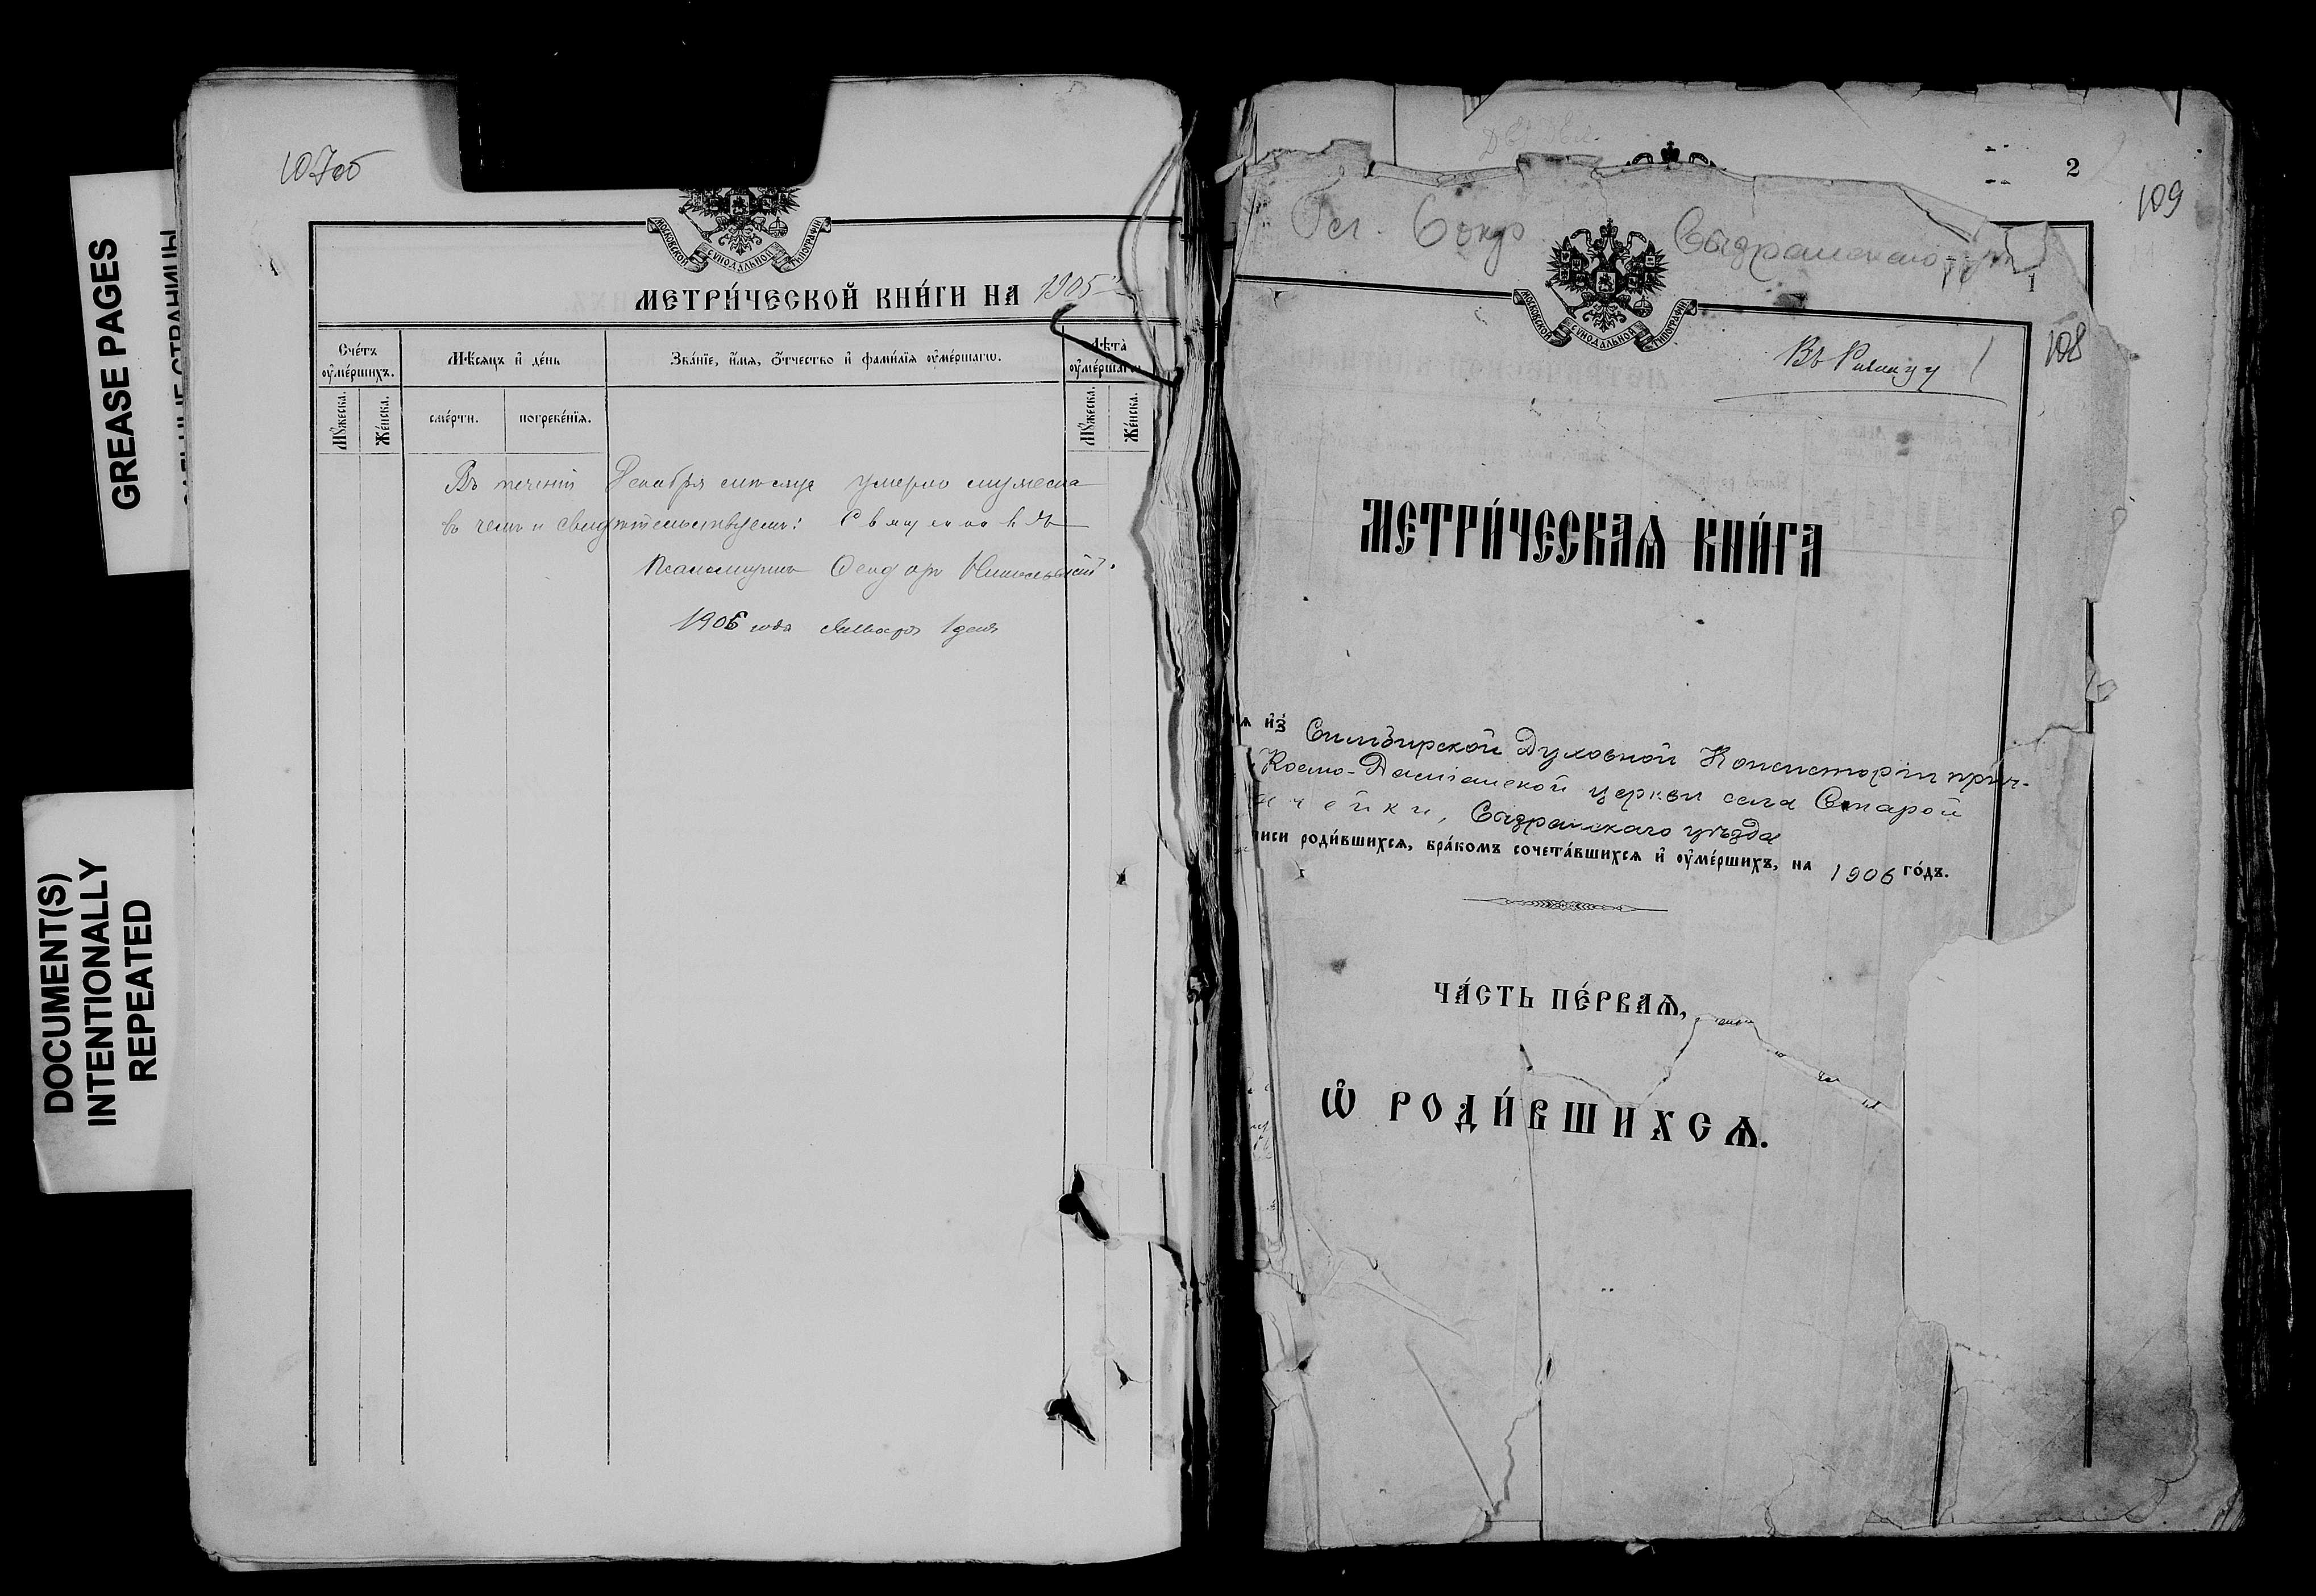 GREASE PAGES
DOCUMENT(S)
INTENTIONALLY
REPEATED
107об
МОСКОВСКОЙ СѴНОДАЛЬНОЙ ТИПОГРАФІИ
МЕТРИ́ЧЕСКОЙ КНИ́ГИ НА 1905
Сче́тъ ᲂу҆ме́ршихъ.
Мѣ́сяцъ и҆ де́нь
Зва́нїе, и҆́мя, ѻ҆́тчество и҆ фами́лїя ᲂу҆ме́ршагѡ.
Лѣ́та ᲂу҆ме́ршагѡ
Мꙋ́жеска.
Же́нска.
сме́рти.
погребе́нїя.
Мꙋ́жеска.
Же́нска.
Въ течении Декабря
въ чемъ и свидѣтельствуемъ:
Псаломщикъ Ѳеодоръ Никольскій.
1906 года Января 1 дня
2
109
Сызранскаго
1
108
МОСКОВСКОЙ СѴНОДАЛЬНОЙ ТИПОГРАФІИ
МЕТРИ́ЧЕСКАѦ КНИ́ГА
и҆з̾ Симбирской Духовной Консисторіи прич-
Космо-Даміанской церкви села Старой
Сызранскаго уѣзда
роди́вшихся, бра́комъ сочета́вшихся и҆ ᲂу҆ме́ршихъ, на 1906 го́дъ.
ЧА́СТЬ ПЕ́РВАѦ,
Ѡ҆ РОДИ́ВШИХСѦ.